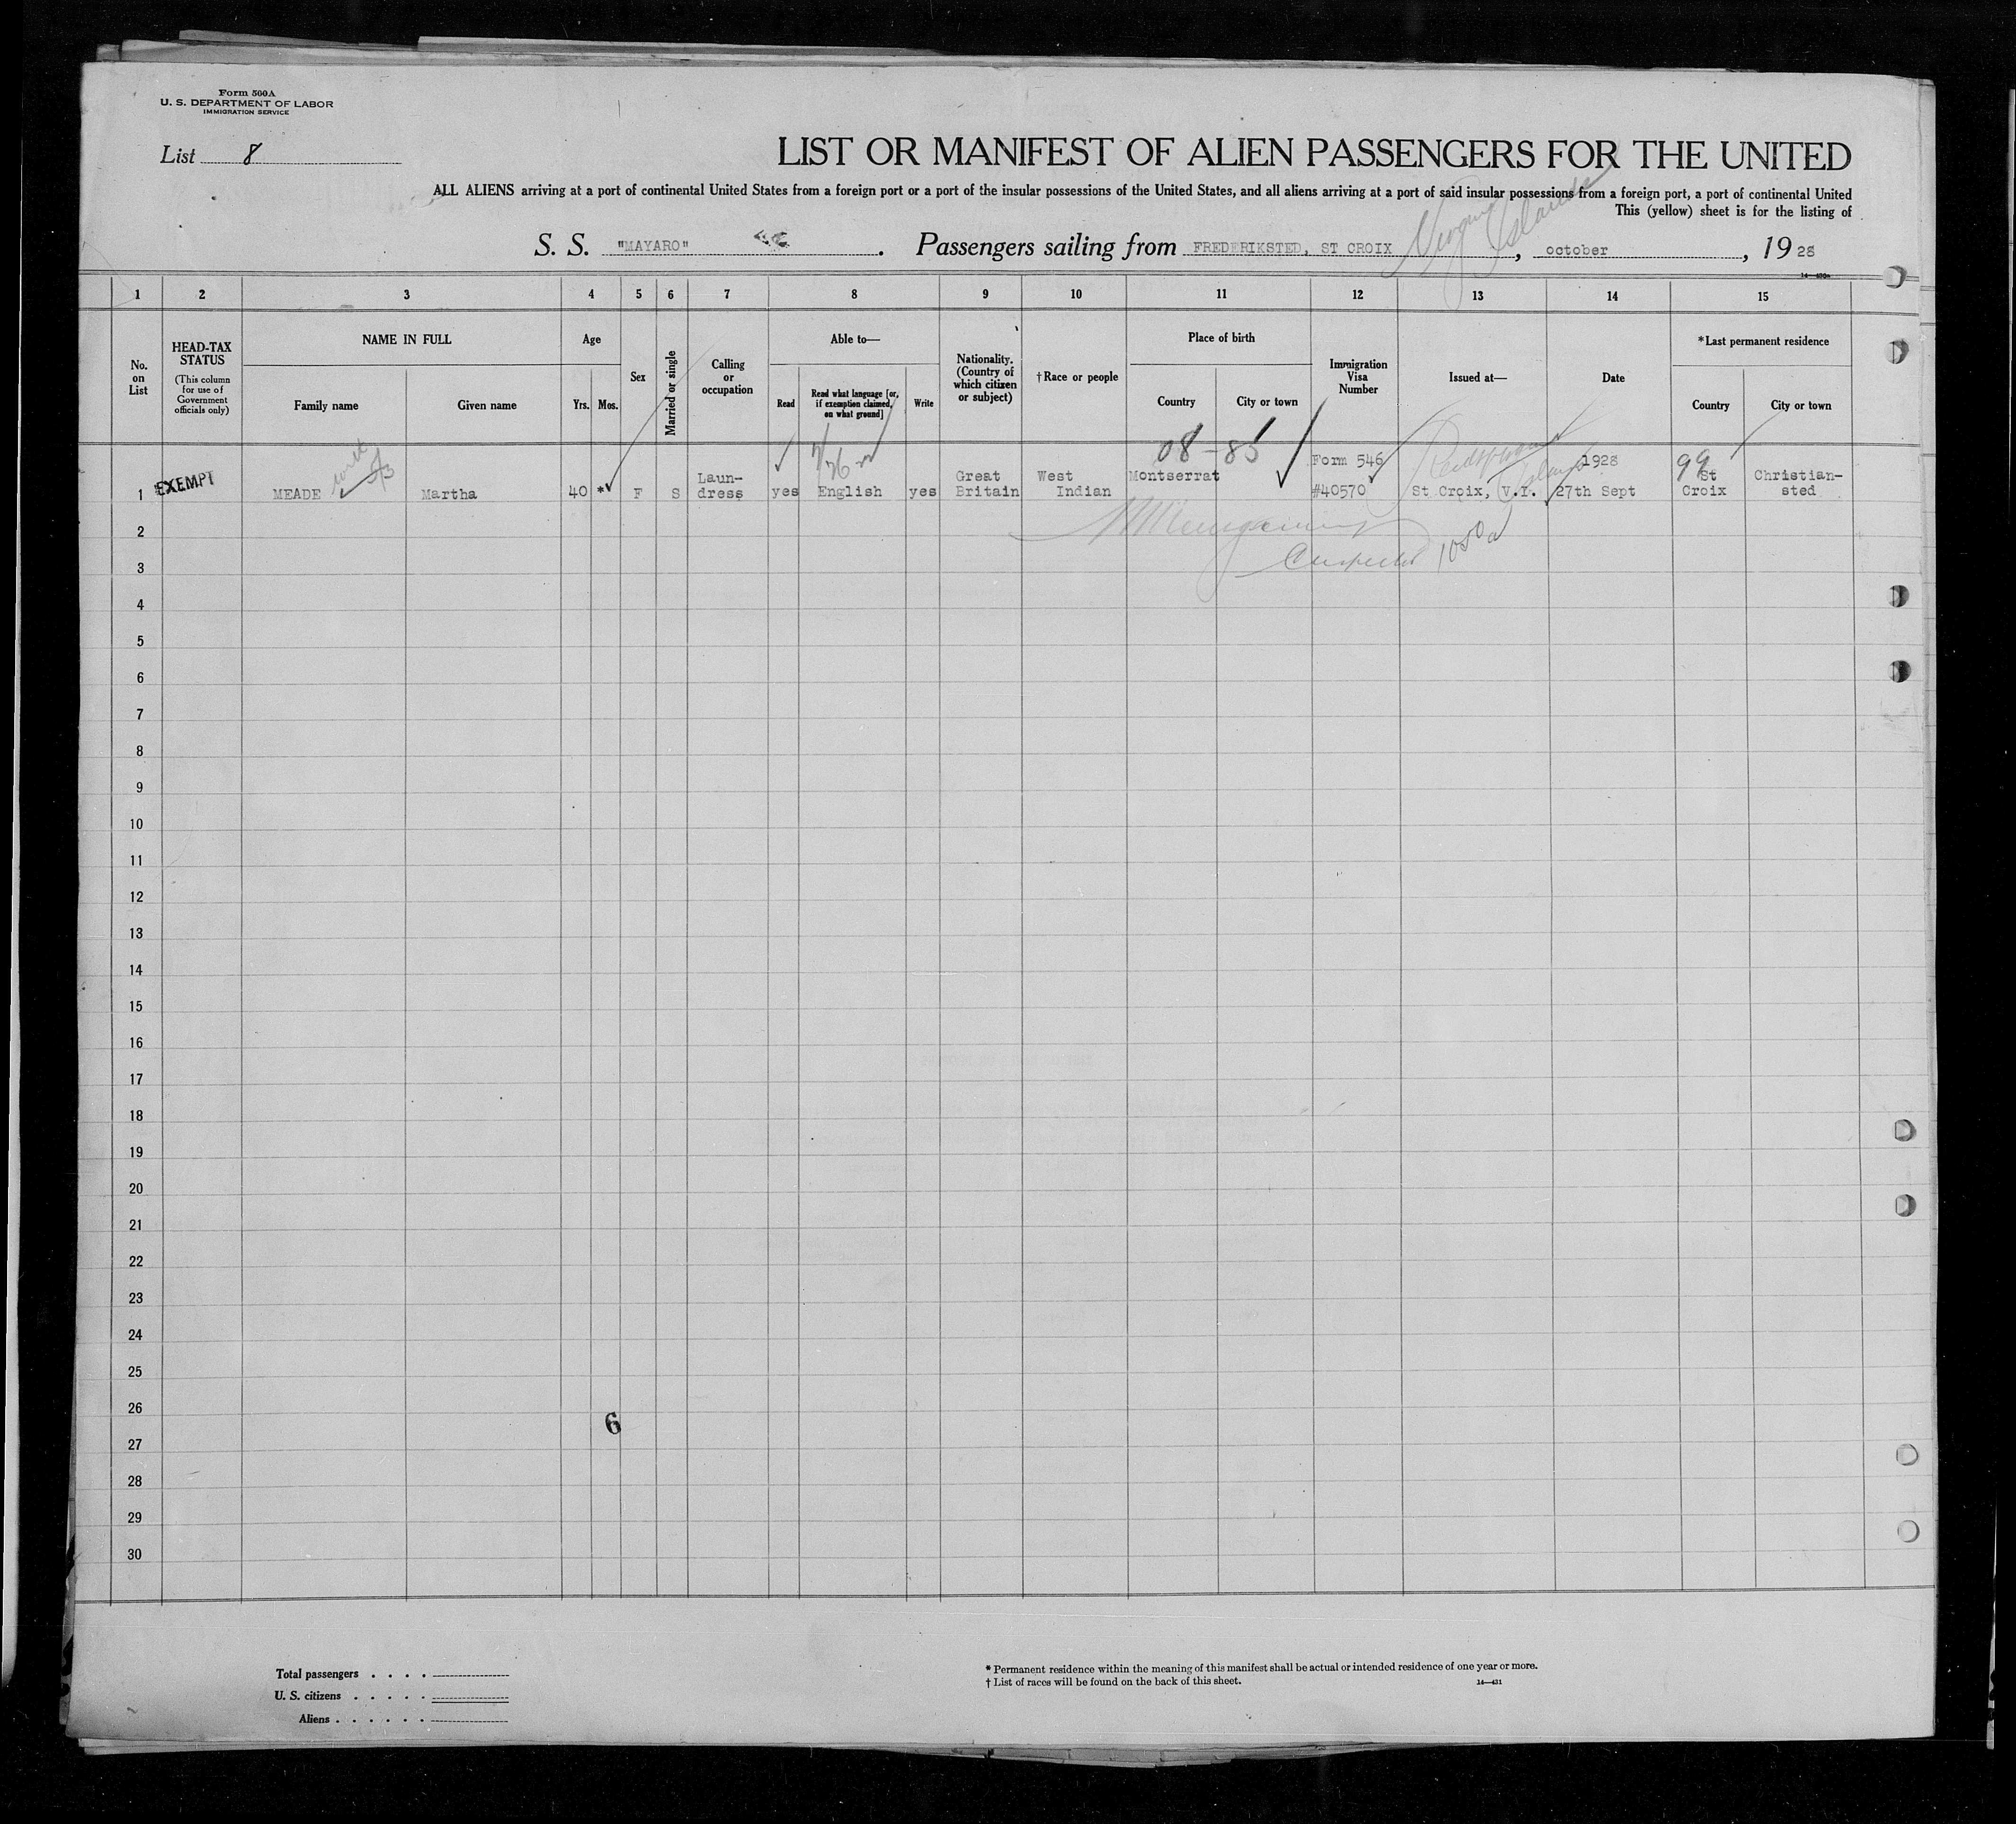 Form 500A
U. S. DEPARTMENT OF LABOR
IMMIGRATION SERVICE
List 8
LIST OR MANIFEST OF ALIEN PASSENGERS FOR THE UNITED
ALL ALIENS arriving at a port of continental United States from a foreign port or a port of the insular possessions of the United States, and all aliens arriving at a port of said insular possessions from a foreign port, a port of continental United
This (yellow) sheet is for the listing of
Virgin Islands
S. S. "MAYARO". Passengers sailing from FREDERIKSTED, ST CROIX, october, 1928
1 2 3 4 5 6 7 8 9 10 11 12 13 14 15
No. on List
HEAD-TAX STATUS
(This column for use of Government officials only)
NAME IN FULL
Family name Given name
Age
Yrs. Mos.
Sex
Married or single
Calling or occupation
Able to—
Read
Read what language [or, if exemption claimed, on what ground]
Write
Nationality. (Country of which citizen or subject)
†Race or people
Place of birth
Country City or town
Immigration Visa Number
Issued at—
Date
*Last permanent residence
Country City or town
08-85
99
1 EXEMPT MEADE Martha 40 * F S Laun-dress yes English yes Great Britain West Indian Montserrat Form 546 #40570 St Croix, V.I. 1928 27th Sept St Croix Christian-sted
2
3
4
5
6
7
8
9
10
11
12
13
14
15
16
17
18
19
20
21
22
23
24
25
26
6
27
28
29
30
Total passengers . . . .
U. S. citizens . . . . .
Aliens . . . . . .
* Permanent residence within the meaning of this manifest shall be actual or intended residence of one year or more.
† List of races will be found on the back of this sheet.
14—431